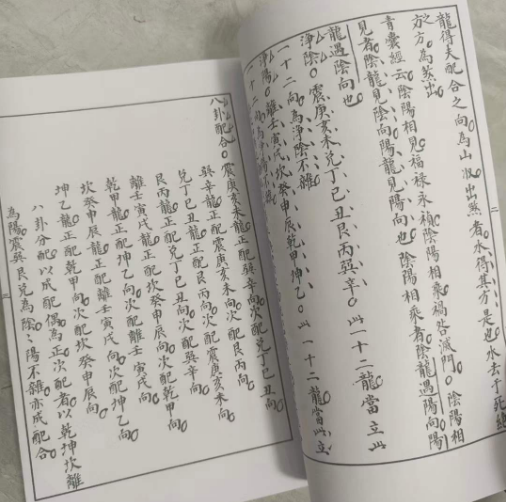 龍得夫配合之向為山淑出煞者水得其方是也水去于死絕
之方為美出
青囊經云陰陽相見福祿永禎陰陽相乘禍咎滅門陰陽相
見者陰龍見陰向陽龍見陽向也陰陽相乘者陰龍遇陽向陽
龍遇陰向也
淨陰震庚亥未兌丁巳丑艮丙巽辛此一十二龍當立此
一十二向為淨陰不雜
淨陽離壬寅戌坎癸申辰乾甲坤乙此一十二龍當此立
一十二向為淨陽
八卦配合
震庚亥未龍正配巽辛向次配兌丁巳丑向次配艮丙向
巽辛龍正配震庚亥未向次配艮丙向
兌丁巳丑龍正配艮丙向次配震庚亥未向
艮丙龍正配兌丁巳丑向次配巽辛向
離壬寅戌龍正配坎癸申辰向次配乾甲向
乾甲龍正配坤乙向次配離壬寅戌向
坎癸申辰龍正配離壬寅戌向次配坤乙向
坤乙龍正配乾甲向次配坎癸申辰向
八卦分配以成配偶為正次配者以乾坤坎離
為陽震巽艮兌為陰陰陽不雜亦成配合